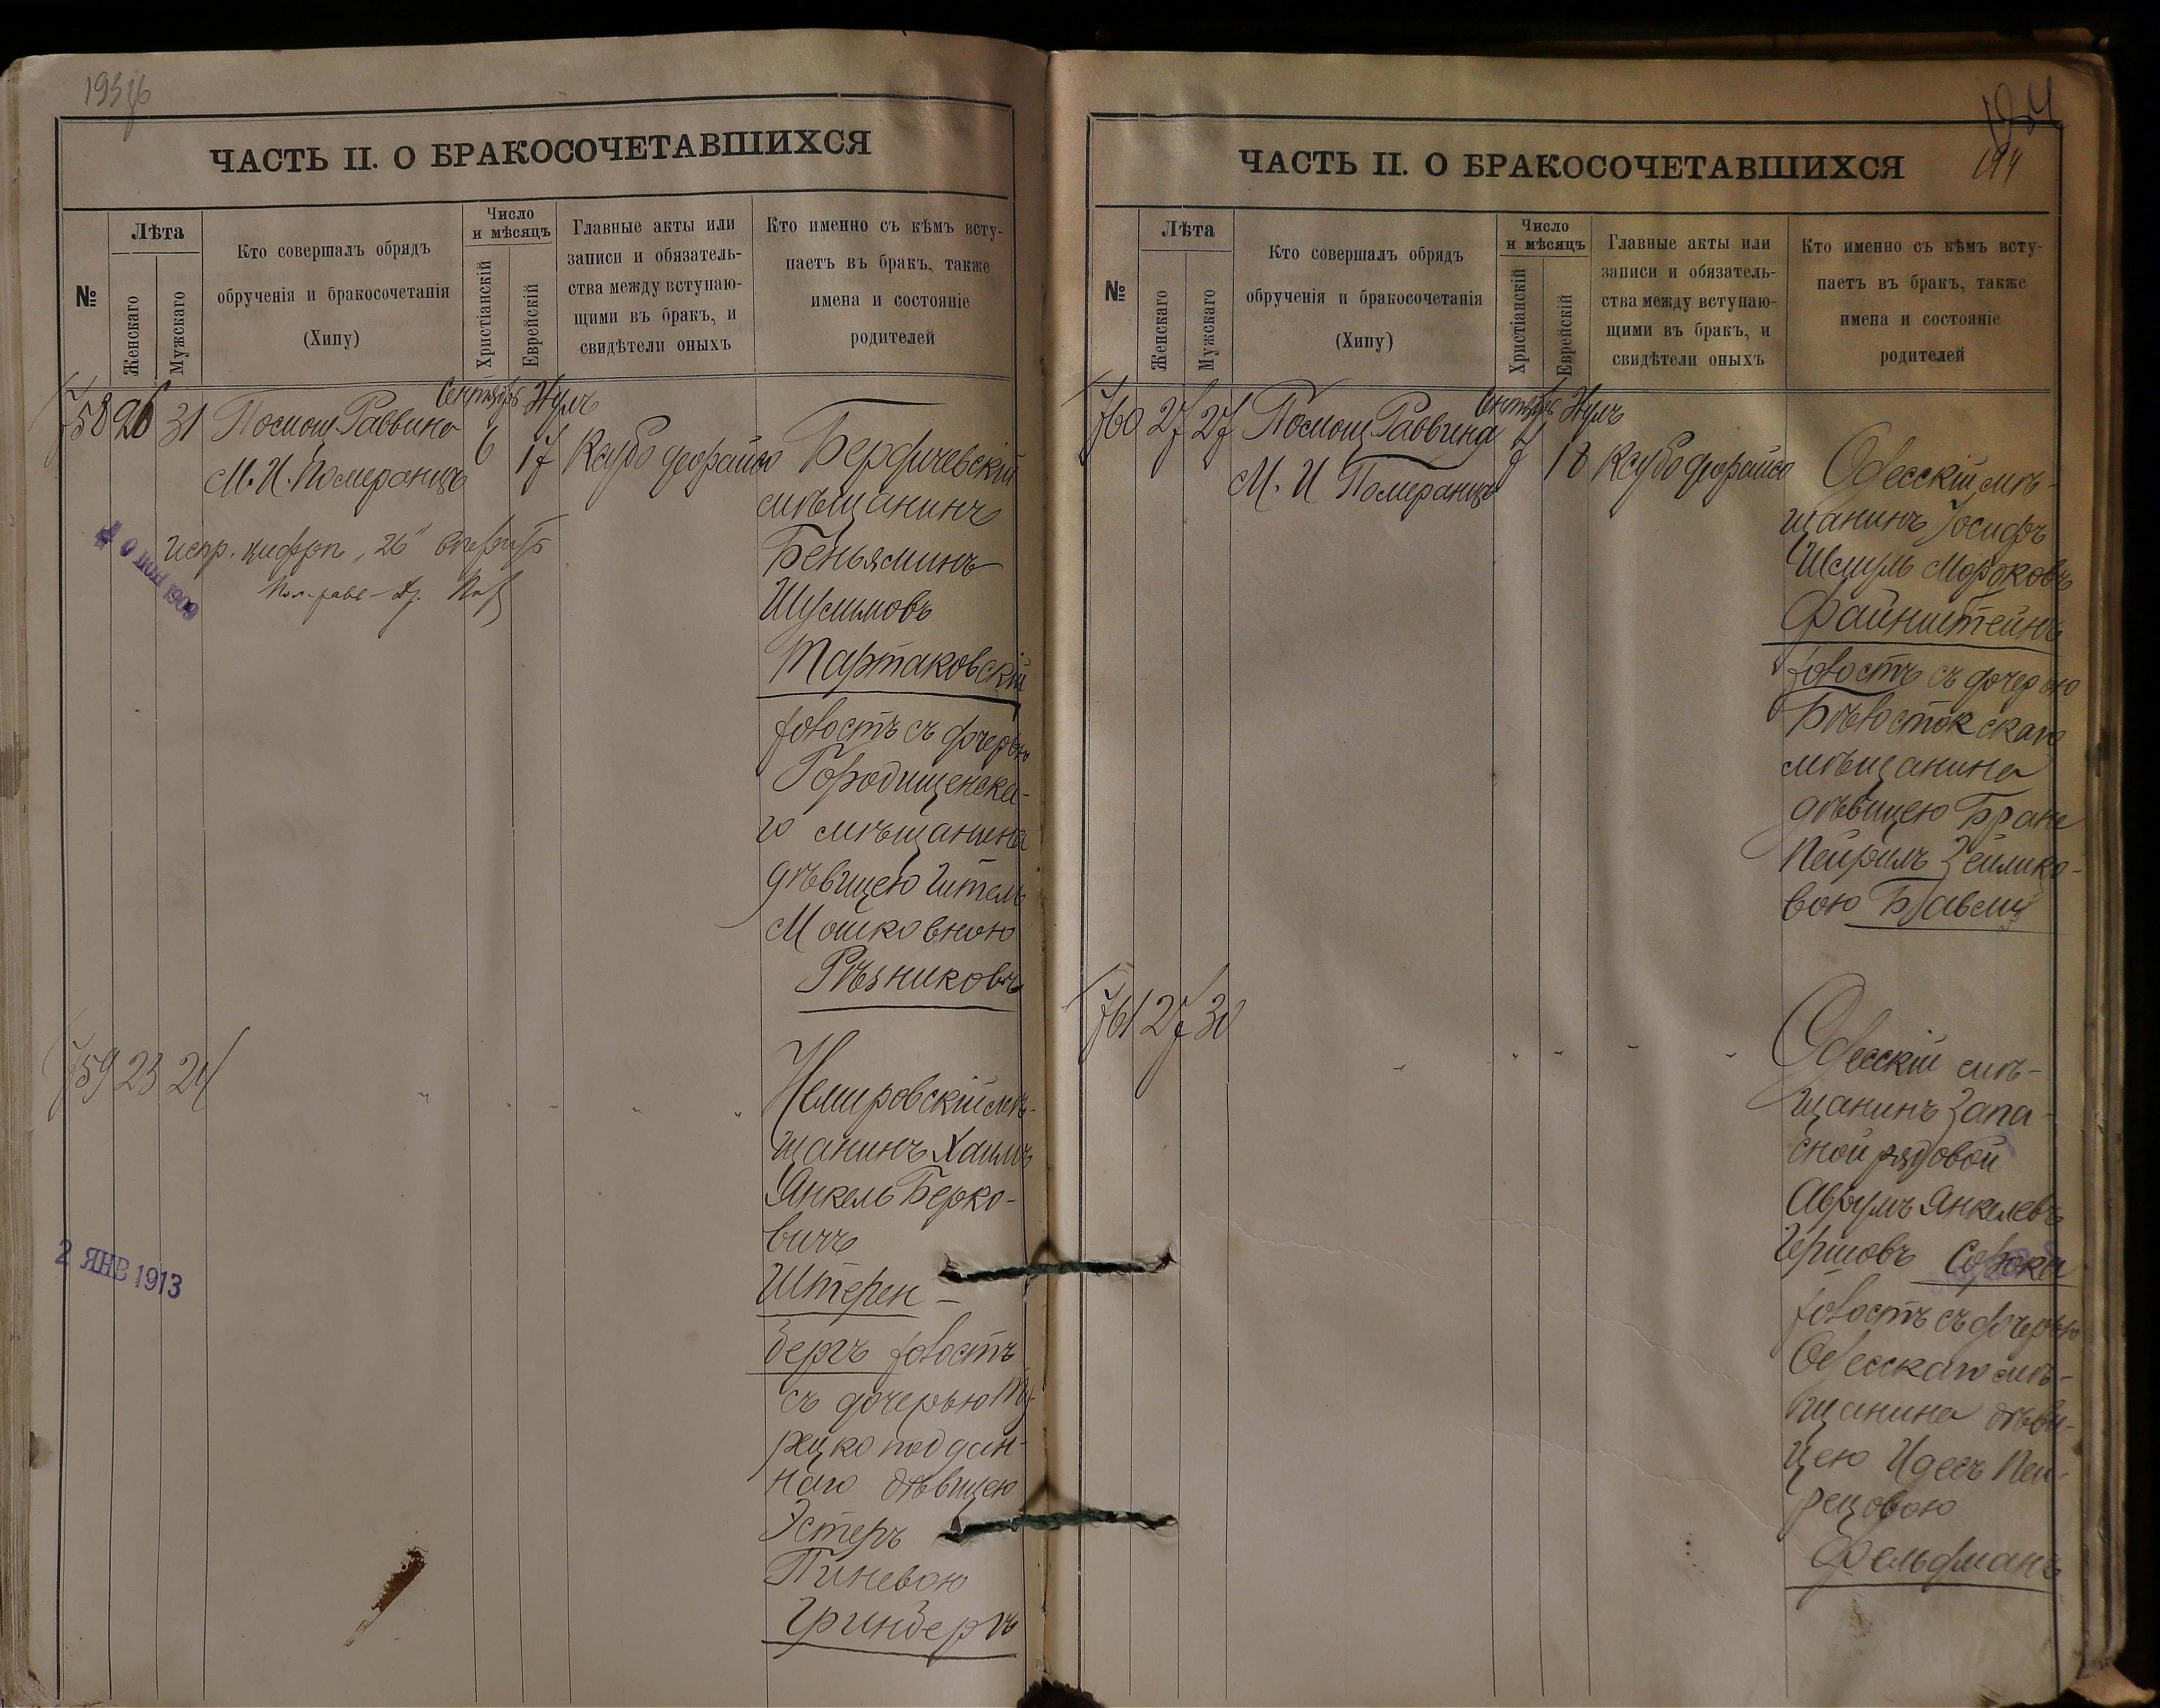 193 об
ЧАСТЬ II. О БРАКОСОЧЕТАВШИХСЯ
№
Лѣта
Женскаго
Мужскаго
Кто совершалъ обрядъ
обрученія и бракосочетанія
(Хипу)
Число
и мѣсяцъ
Христіанскій
Еврейскій
Главные акты или
записи и обязатель-
ства между вступаю-
щими въ бракъ, и
свидѣтели оныхъ
Кто именно съ кѣмъ всту-
паетъ въ бракъ, также
имена и состояніе
родителей
Сентябрь Илулъ
758 26 31 Помощ Раввина
М. И. Померанцъ
6 17
Бердичевскій
мѣщанинъ
Беньяминъ
Шусимовъ
Тартаковскій
холостъ съ дочерью
Городищенска-
го мѣщанина
дѣвицею Гитель
Мошковною
Рѣзниковъ
Испр. цифра „26"
1909
759 23 24
" " " " "
Немировскій мѣ-
щанинъ Хаимъ
Янкель Берко-
вичъ
Штерен-
бергъ холостъ
съ дочерью Ту-
рецко поддан-
наго дѣвицею
Эстеръ
Пиневою
Гринбергъ
2 ЯНВ 1913
194
ЧАСТЬ II. О БРАКОСОЧЕТАВШИХСЯ
№
Лѣта
Женскаго
Мужскаго
Кто совершалъ обрядъ
обрученія и бракосочетанія
(Хипу)
Число
и мѣсяцъ
Христіанскій
Еврейскій
Главные акты или
записи и обязатель-
ства между вступаю-
щими въ бракъ, и
свидѣтели оныхъ
Кто именно съ кѣмъ всту-
паетъ въ бракъ, также
имена и состояніе
родителей
Сентябрь Илулъ
760 27 27 Помощ Раввина
М. И Померанцъ
7 18
Одесскій мѣ-
щанинъ Іосифъ
Шмуль
Файнштейнъ
холостъ съ дочерью
Бѣлостокскаго
мѣщанина
дѣвицею Бране
Пейрилъ Зейлико-
вою
761 27 30
" " " " "
Одесскій мѣ-
щанинъ Запа-
сной рядовой
Аврумъ Янкелевъ
Гершовъ Сорока
холостъ съ дочерью
Одесскаго мѣ-
щанина дѣви-
цею Идесъ Пей-
рецовою
Фельдманъ